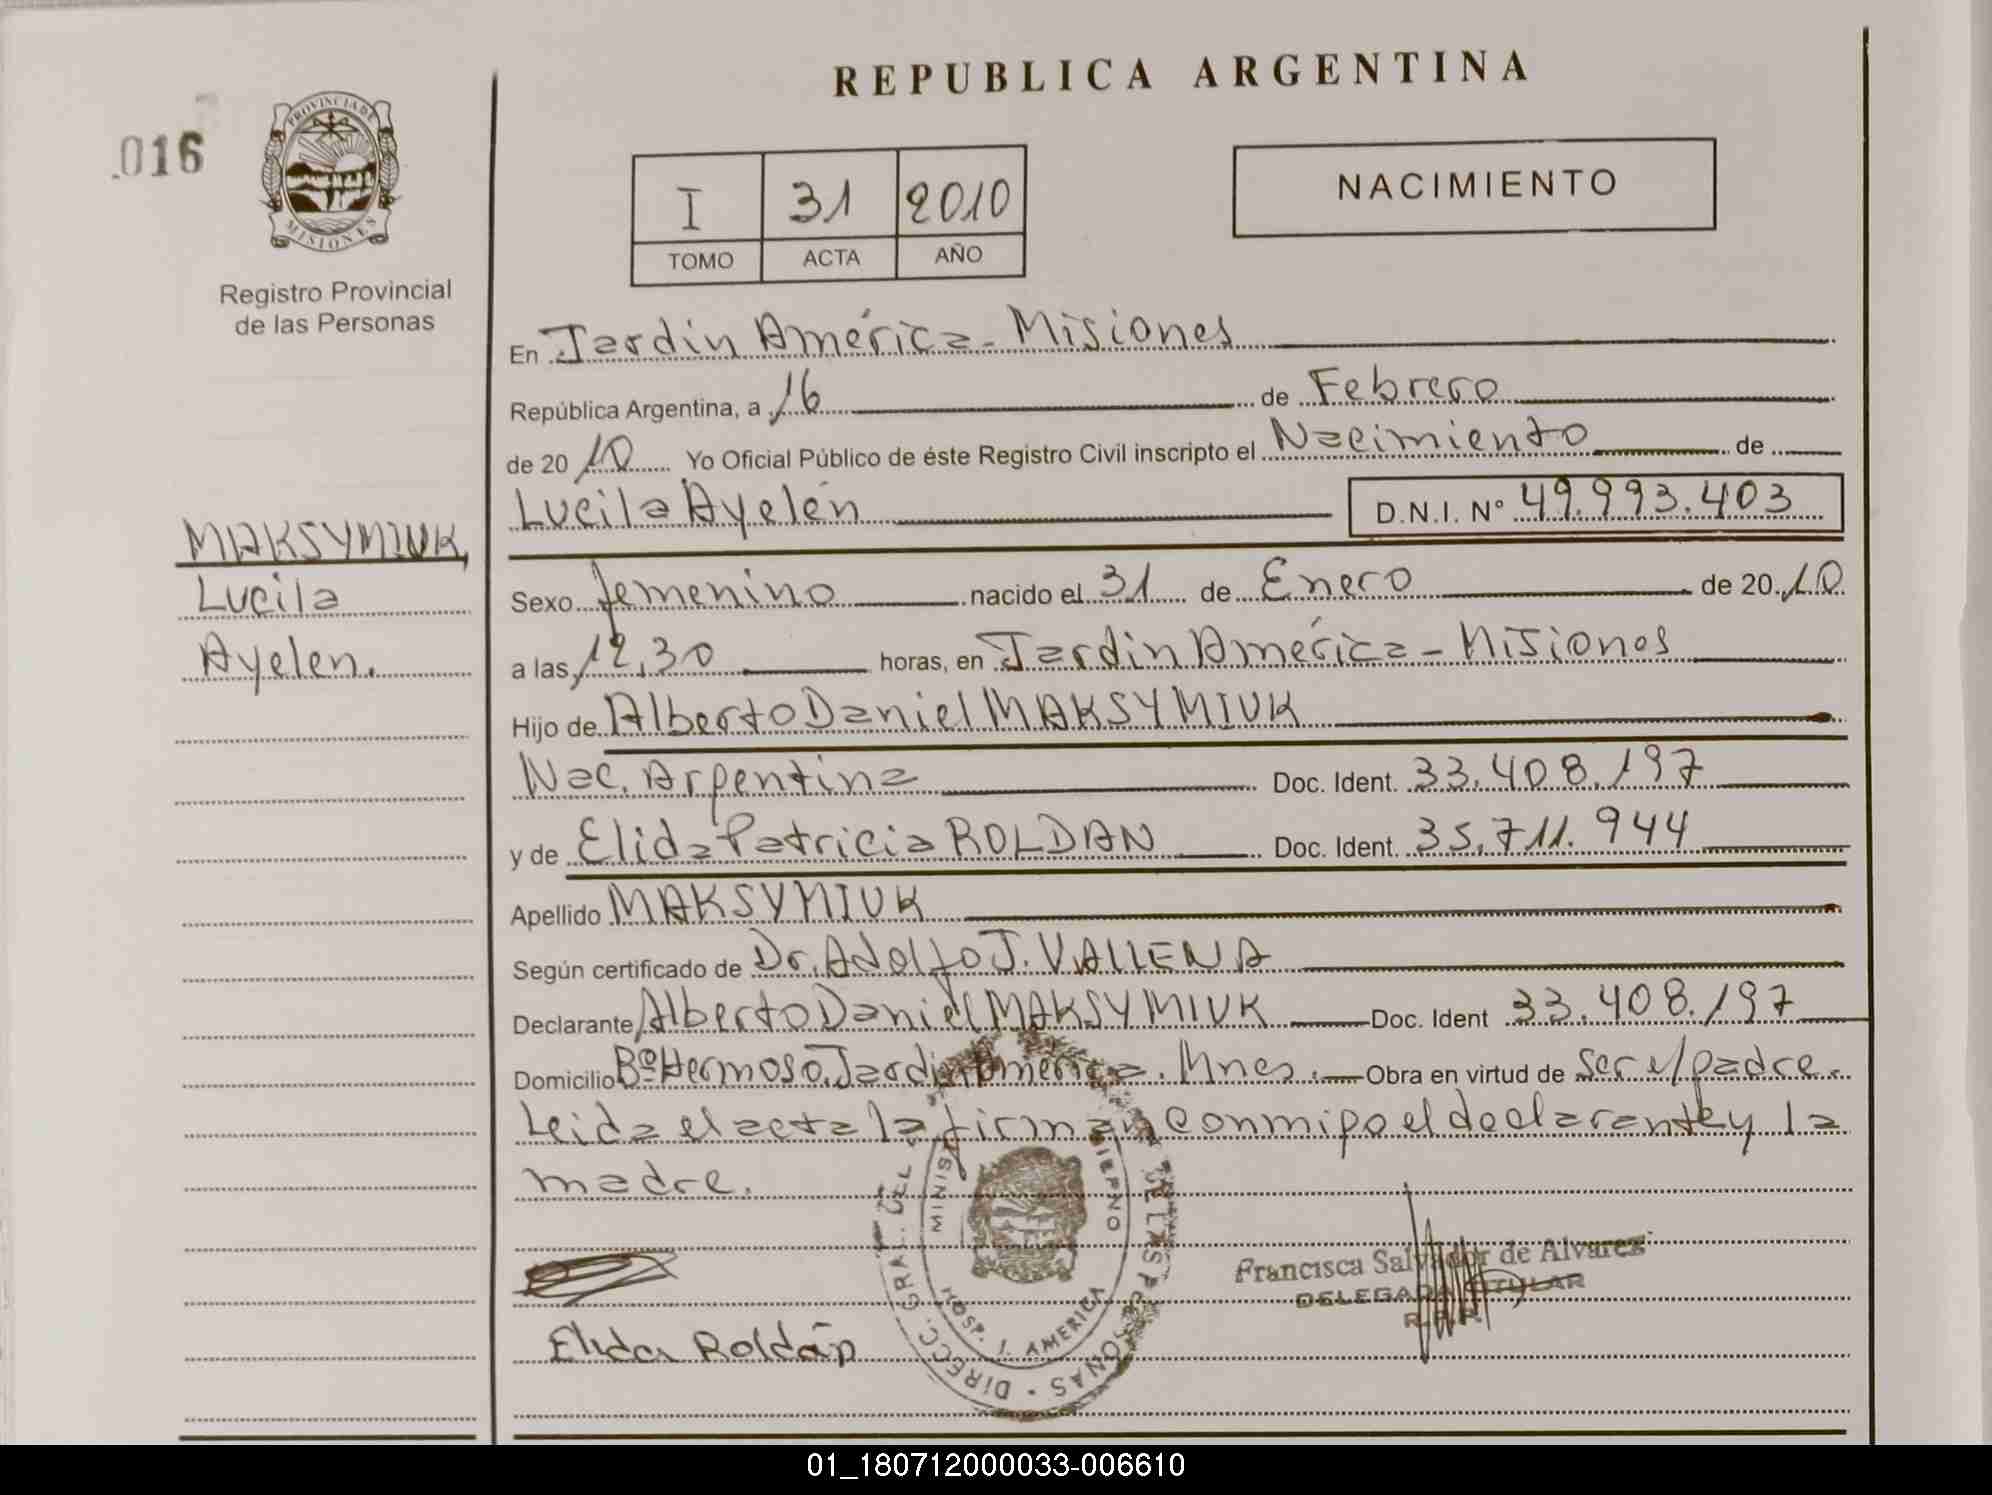 REPUBLICA ARGENTINA
016
PROVINCIA DE
MISIONES
Registro Provincial
de las Personas
I 31 2010
TOMO ACTA AÑO
NACIMIENTO
MAKSYMIUK,
Lucila
Ayelen.
En Jardín América - Misiones
República Argentina, a 16 de Febrero
de 2010 Yo Oficial Público de éste Registro Civil inscripto el Nacimiento de
Lucila Ayelén D.N.I. Nº 49.993.403
Sexo femenino nacido el 31 de Enero de 2010
a las 12,30 horas, en Jardín América - Misiones
Hijo de Alberto Daniel MAKSYMIUK
Nac. Argentina Doc. Ident. 33.408.197
y de Elida Patricia ROLDAN Doc. Ident. 35.711.944
Apellido MAKSYMIUK
Según certificado de Dr. Adolfo J. VALLENA
Declarante Alberto Daniel MAKSYMIUK Doc. Ident 33.408.197
Domicilio Bº Hermoso. Jardín América. Mnes. Obra en virtud de ser el padre.
Leida el acta la firman conmigo el declarante y la
madre.
Francisca Salvador de Alvarez
DELEGADA TITULAR
R.P.P.
Elida Roldán
DIRECC. GRAL. DEL DE LAS PERSONAS
HOSP. J. AMERICA
01_180712000033-006610